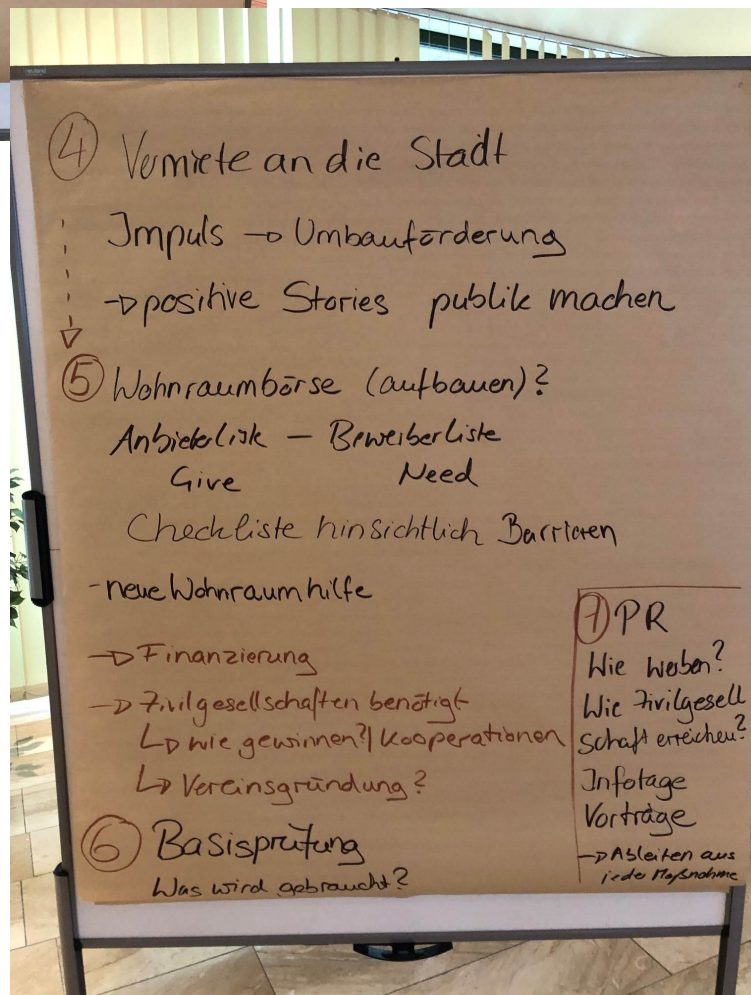 neuland
④ Vermiete an die Stadt
Impuls → Umbauförderung
→ positive Stories publik machen
⑤ Wohnraumbörse (aufbauen)?
Anbieterliste – Bewerberliste
Give Need
Checkliste hinsichtlich Barrieren
- neue Wohnraumhilfe
→ Finanzierung
→ Zivilgesellschaften benötigt
↳ wie gewinnen?/Kooperationen
↳ Vereinsgründung?
⑥ Basisprüfung
Was wird gebraucht?
⑦ PR
Wie werben?
Wie Zivilgesell
schaft erreichen?
Infotage
Vorträge
→ Ableiten aus
jeder Maßnahme